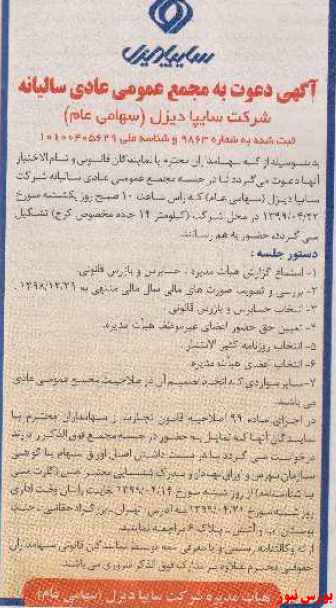 سایپادیزل
آگهی دعوت به مجمع عمومی عادی سالیانه
شرکت سایپا دیزل (سهامی عام)
ثبت شده به شماره ۹۸۶۳ و شناسه ملی ۱۰۱۰۰۴۰۵۶۲۹
بدینوسیله از کلیه سهامداران محترم یا نمایندگان قانونی و تام الاختیار
آنها دعوت می گردد تا در جلسه مجمع عمومی عادی سالیانه شرکت
سایپا دیزل (سهامی عام) که راس ساعت ۱۰ صبح روز یکشنبه مورخ
۱۳۹۹/۰۴/۲۲ در محل شرکت (کیلومتر ۱۴ جاده مخصوص کرج) تشکیل
می گردد، حضور به هم رسانند.
دستور جلسه :
۱- استماع گزارش هیأت مدیره ، حسابرس و بازرس قانونی.
۲- بررسی و تصویب صورت های مالی سال مالی منتهی به ۱۳۹۸/۱۲/۲۹
۳- انتخاب حسابرس و بازرس قانونی
۴- تعیین حق حضور اعضای غیرموظف هیأت مدیره.
۵- انتخاب روزنامه کثیر الانتشار.
۶- انتخاب اعضای هیأت مدیره.
۷- سایر مواردی که اتخاذ تصمیم آن در صلاحیت مجمع عمومی عادی
می باشد.
در اجرای ماده ۹۹ اصلاحیه قانون تجارت از سهامداران محترم یا
نمایندگان آنها که تمایل به حضور در جلسه مجمع فوق الذکر را دارند
درخواست می گردد با در دست داشتن اصل اوراق سهام یا گواهی
سازمان بورس و اوراق بهادار و مدرک شناسایی معتبر عکس (کارت ملی
یا شناسنامه) از روز شنبه مورخ ۱۳۹۹/۰۴/۱۴ لغایت پایان وقت اداری
روز شنبه مورخ ۱۳۹۹/۰۴/۲۱ به آدرس : تهران ، بزرگراه حقانی ،
پلاک ۶ مراجعه نمایند.
ارائه وکالتنامه رسمی و یا معرفی نامه توسط نمایندگان قانونی سهامداران
حقوقی محترم علاوه بر مدارک فوق الذکر ضروری می باشد.
هیأت مدیره شرکت سایپا دیزل (سهامی عام)
بورس نیوز